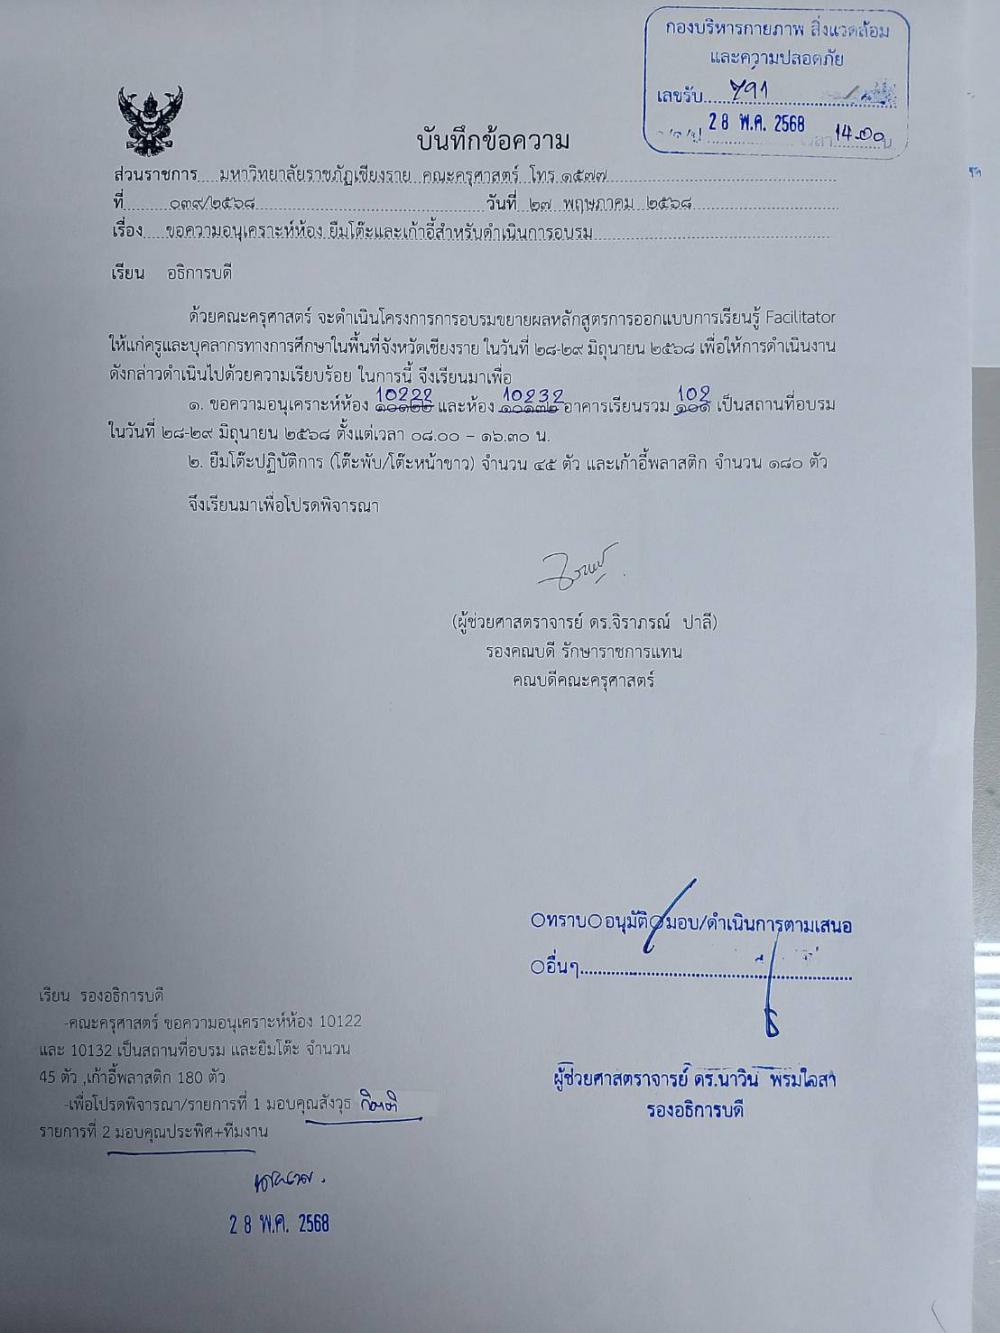 กองบริหารกายภาพ สิ่งแวดล้อม
และความปลอดภัย
เลขรับ
28 พ.ค. 2568
เวลา 14.00 น.
บันทึกข้อความ
ส่วนราชการ มหาวิทยาลัยราชภัฏเชียงราย คณะครุศาสตร์ โทร ๑๕๗๗
ที่ ๐๓๙/๒๕๖๘ วันที่ ๒๗ พฤษภาคม ๒๕๖๘
เรื่อง ขอความอนุเคราะห์ห้อง ยืมโต๊ะและเก้าอี้สำหรับดำเนินการอบรม
เรียน อธิการบดี
ด้วยคณะครุศาสตร์ จะดำเนินโครงการการอบรมขยายผลหลักสูตรการออกแบบการเรียนรู้ Facilitator
ให้แก่ครูและบุคลากรทางการศึกษาในพื้นที่จังหวัดเชียงราย ในวันที่ ๒๘-๒๙ มิถุนายน ๒๕๖๘ เพื่อให้การดำเนินงาน
ดังกล่าวดำเนินไปด้วยความเรียบร้อย ในการนี้ จึงเรียนมาเพื่อ
10222 10232 102
๑. ขอความอนุเคราะห์ห้อง ๑๐๑๒๒ และห้อง ๑๐๑๓๒ อาคารเรียนรวม ๑๐๑ เป็นสถานที่อบรม
ในวันที่ ๒๘-๒๙ มิถุนายน ๒๕๖๘ ตั้งแต่เวลา ๐๘.๐๐ – ๑๖.๓๐ น.
๒. ยืมโต๊ะปฏิบัติการ (โต๊ะพับ/โต๊ะหน้าขาว) จำนวน ๔๕ ตัว และเก้าอี้พลาสติก จำนวน ๑๘๐ ตัว
จึงเรียนมาเพื่อโปรดพิจารณา
(ผู้ช่วยศาสตราจารย์ ดร.จิราภรณ์ ปาลี)
รองคณบดี รักษาราชการแทน
คณบดีคณะครุศาสตร์
ทราบ อนุมัติ มอบ/ดำเนินการตามเสนอ
อื่นๆ
ผู้ช่วยศาสตราจารย์ ดร.นาวิน พรมใจสา
รองอธิการบดี
เรียน รองอธิการบดี
-คณะครุศาสตร์ ขอความอนุเคราะห์ห้อง 10122
และ 10132 เป็นสถานที่อบรม และยืมโต๊ะ จำนวน
45 ตัว ,เก้าอี้พลาสติก 180 ตัว
-เพื่อโปรดพิจารณา/รายการที่ 1 มอบคุณสังวุธ
รายการที่ 2 มอบคุณประพิศ+ทีมงาน
28 พ.ค. 2568